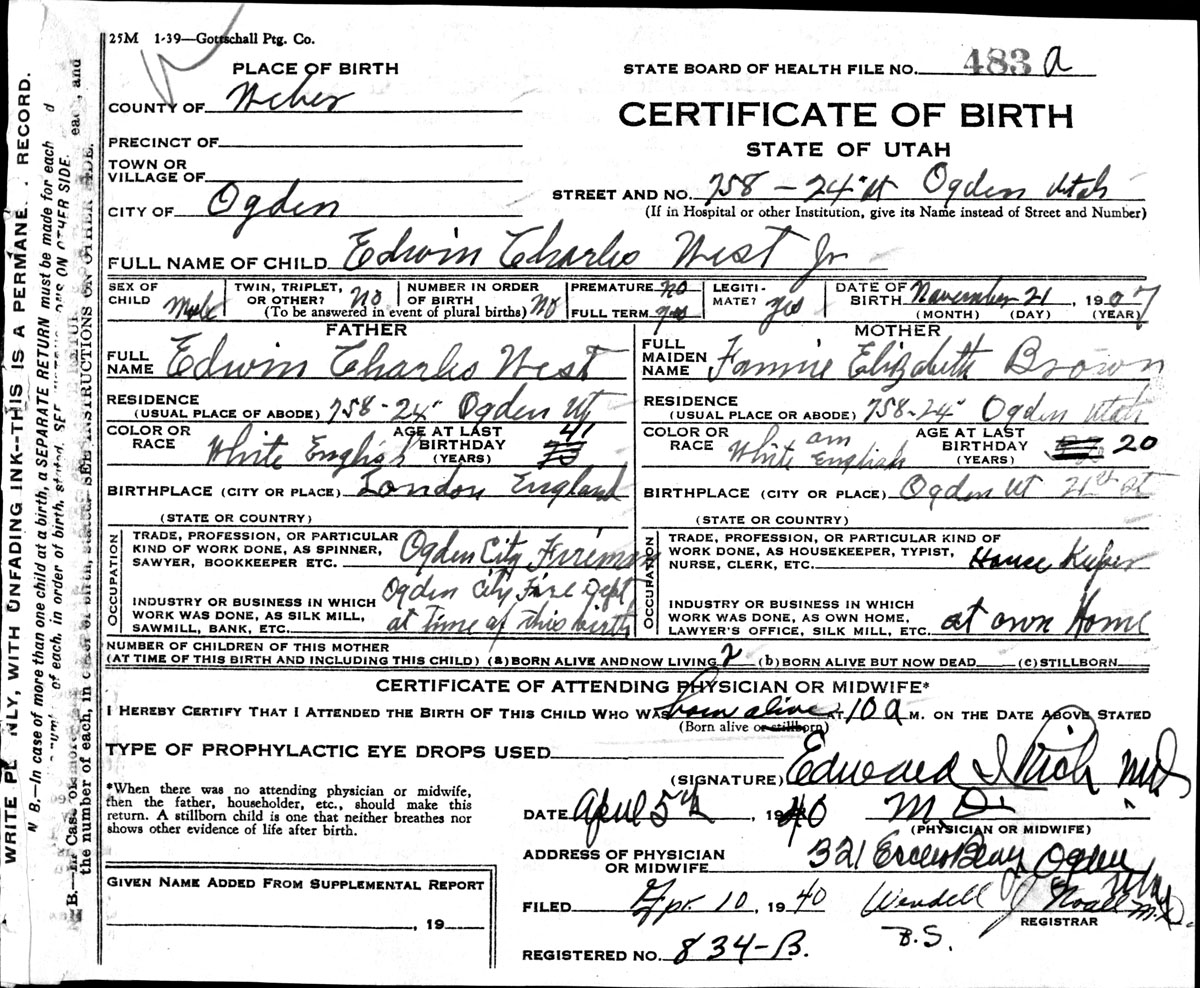 25M 1-39—Gottschall Ptg. Co.
PLACE OF BIRTH
STATE BOARD OF HEALTH FILE NO. 483 a
COUNTY OF Weber
CERTIFICATE OF BIRTH
STATE OF UTAH
PRECINCT OF
TOWN OR
VILLAGE OF
STREET AND NO. 758 - 24" st Ogden Utah
(If in Hospital or other Institution, give its Name instead of Street and Number)
CITY OF Ogden
FULL NAME OF CHILD Edwin Charles West Jr
SEX OF CHILD Male
TWIN, TRIPLET, OR OTHER? No
NUMBER IN ORDER OF BIRTH No
(To be answered in event of plural births)
PREMATURE no
FULL TERM yes
LEGITI-MATE? yes
DATE OF BIRTH November 21, 1907
(MONTH) (DAY) (YEAR)
FATHER
FULL NAME Edwin Charles West
RESIDENCE
(USUAL PLACE OF ABODE) 758-24" Ogden Ut
COLOR OR RACE White English
AGE AT LAST BIRTHDAY (YEARS) 41
BIRTHPLACE (CITY OR PLACE) London England
(STATE OR COUNTRY)
OCCUPATION
TRADE, PROFESSION, OR PARTICULAR
KIND OF WORK DONE, AS SPINNER,
SAWYER, BOOKKEEPER ETC. Ogden City Fireman
INDUSTRY OR BUSINESS IN WHICH
WORK WAS DONE, AS SILK MILL,
SAWMILL, BANK, ETC.
Ogden City Fire Dept
at time of this birth
MOTHER
FULL MAIDEN NAME Fannie Elizabeth Brown
RESIDENCE
(USUAL PLACE OR ABODE) 758-24" Ogden Utah
COLOR OR RACE White am English
AGE AT LAST BIRTHDAY (YEARS) 20
BIRTHPLACE (CITY OR PLACE) Ogden Ut 21th st
(STATE OR COUNTRY)
OCCUPATION
TRADE, PROFESSION, OR PARTICULAR KIND OF
WORK DONE, AS HOUSEKEEPER, TYPIST,
NURSE, CLERK, ETC. House Keeper
INDUSTRY OR BUSINESS IN WHICH
WORK WAS DONE, AS OWN HOME,
LAWYER'S OFFICE, SILK MILL, ETC. at own Home
NUMBER OF CHILDREN OF THIS MOTHER
(AT TIME OF THIS BIRTH AND INCLUDING THIS CHILD) (a) BORN ALIVE AND NOW LIVING 2 (b) BORN ALIVE BUT NOW DEAD (c) STILLBORN
CERTIFICATE OF ATTENDING PHYSICIAN OR MIDWIFE*
I HEREBY CERTIFY THAT I ATTENDED THE BIRTH OF THIS CHILD WHO WAS born alive AT 10 a M. ON THE DATE ABOVE STATED
(Born alive or stillborn)
TYPE OF PROPHYLACTIC EYE DROPS USED
(SIGNATURE) Edward I Rich MD
*When there was no attending physician or midwife,
then the father, householder, etc., should make this
return. A stillborn child is one that neither breathes nor
shows other evidence of life after birth.
DATE April 5th, 1940 M. D.
(PHYSICIAN OR MIDWIFE)
ADDRESS OF PHYSICIAN
OR MIDWIFE 321 Eccles Bldg Ogden Utah
GIVEN NAME ADDED FROM SUPPLEMENTAL REPORT
, 19
FILED Apr. 10, 1940 Wendell J Noall M.D.
REGISTRAR
B.S.
REGISTERED NO. 834-B.
WRITE PL NLY, WITH UNFADING INK--THIS IS A PERMANE RECORD.
N B.—In case of more than one child at a birth, a SEPARATE RETURN must be made for each
of each, in order of birth, stated.
the number of each, in order of birth, stated. SEE INSTRUCTIONS ON OTHER SIDE.